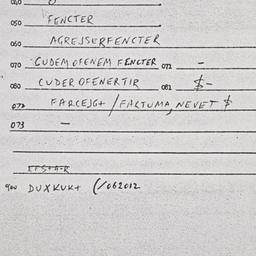 040
050 FENCTER
060 AGREJSERFENCTER
070 CUDEM OFENEM FENCTER 072 -
080 CUDER OFENERTIR 081 $-
077 FARCEJG+ / FARTUMA, NEVET $
073 -
900 DUXKUKT (/062012